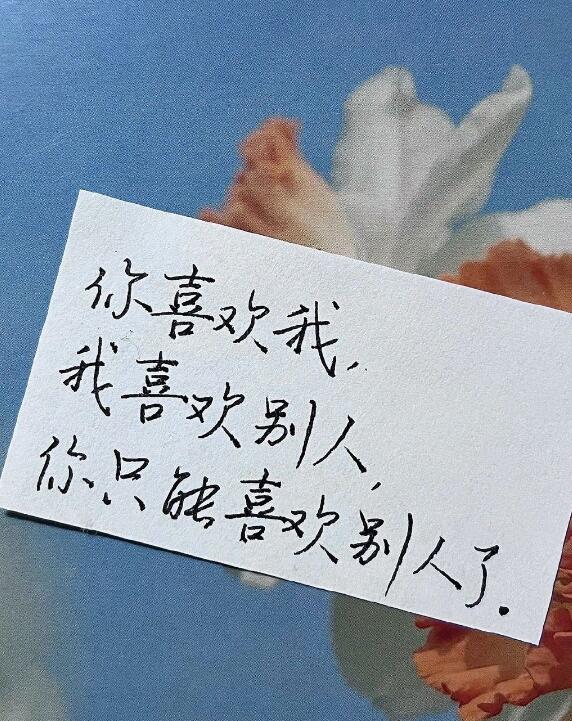 你喜欢我,
我喜欢别人,
你只能喜欢别人了.